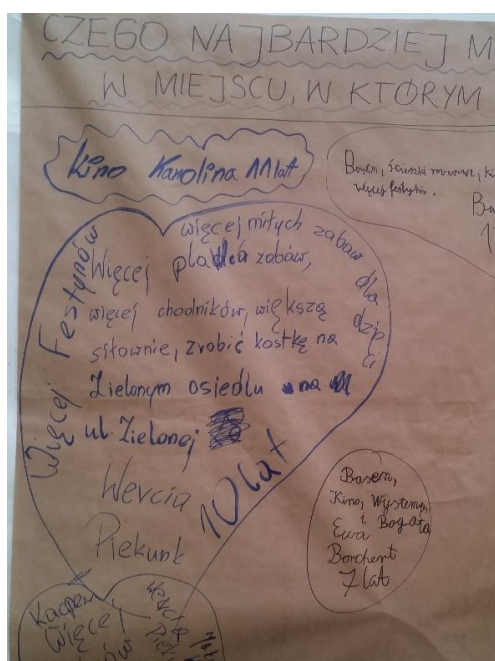 CZEGO NAJBARDZIEJ M
W MIEJSCU, W KTÓRYM
Kino Karolina 11 lat
Basen, ścianki
więcej festynów.
Ba
Więcej Festynów
więcej miłych zabaw dla dzieci
Więcej placów zabaw,
więcej chodników, większą
siłownie, zrobić kostkę na
Zielonym osiedlu na
ul. Zielonej
Wercia 10 lat
Piekunk
Basen,
Kino, Występy,
i
Ewa Bogata
Borchert
7 lat
Kacper
Więcej